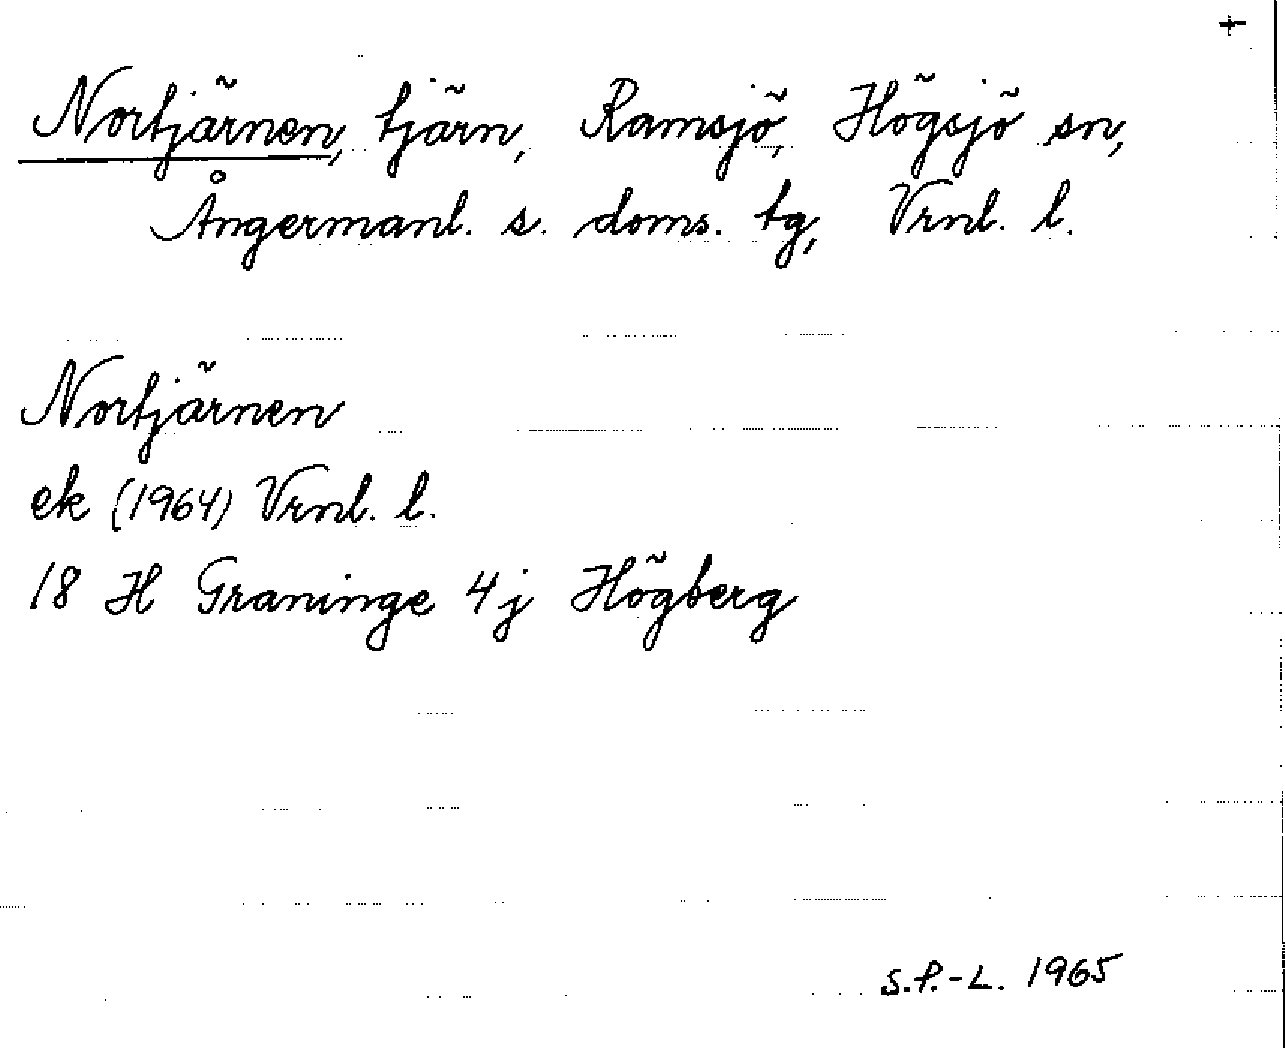 +
Nortjärnen, tjärn, Ramsjö, Högsjö sn,
Ångermanl. s. doms. tg, Vrnl. l.
Nortjärnen
ek (1964) Vrnl. l.
18 H Graninge 4j Högberg
S.P.-L. 1965